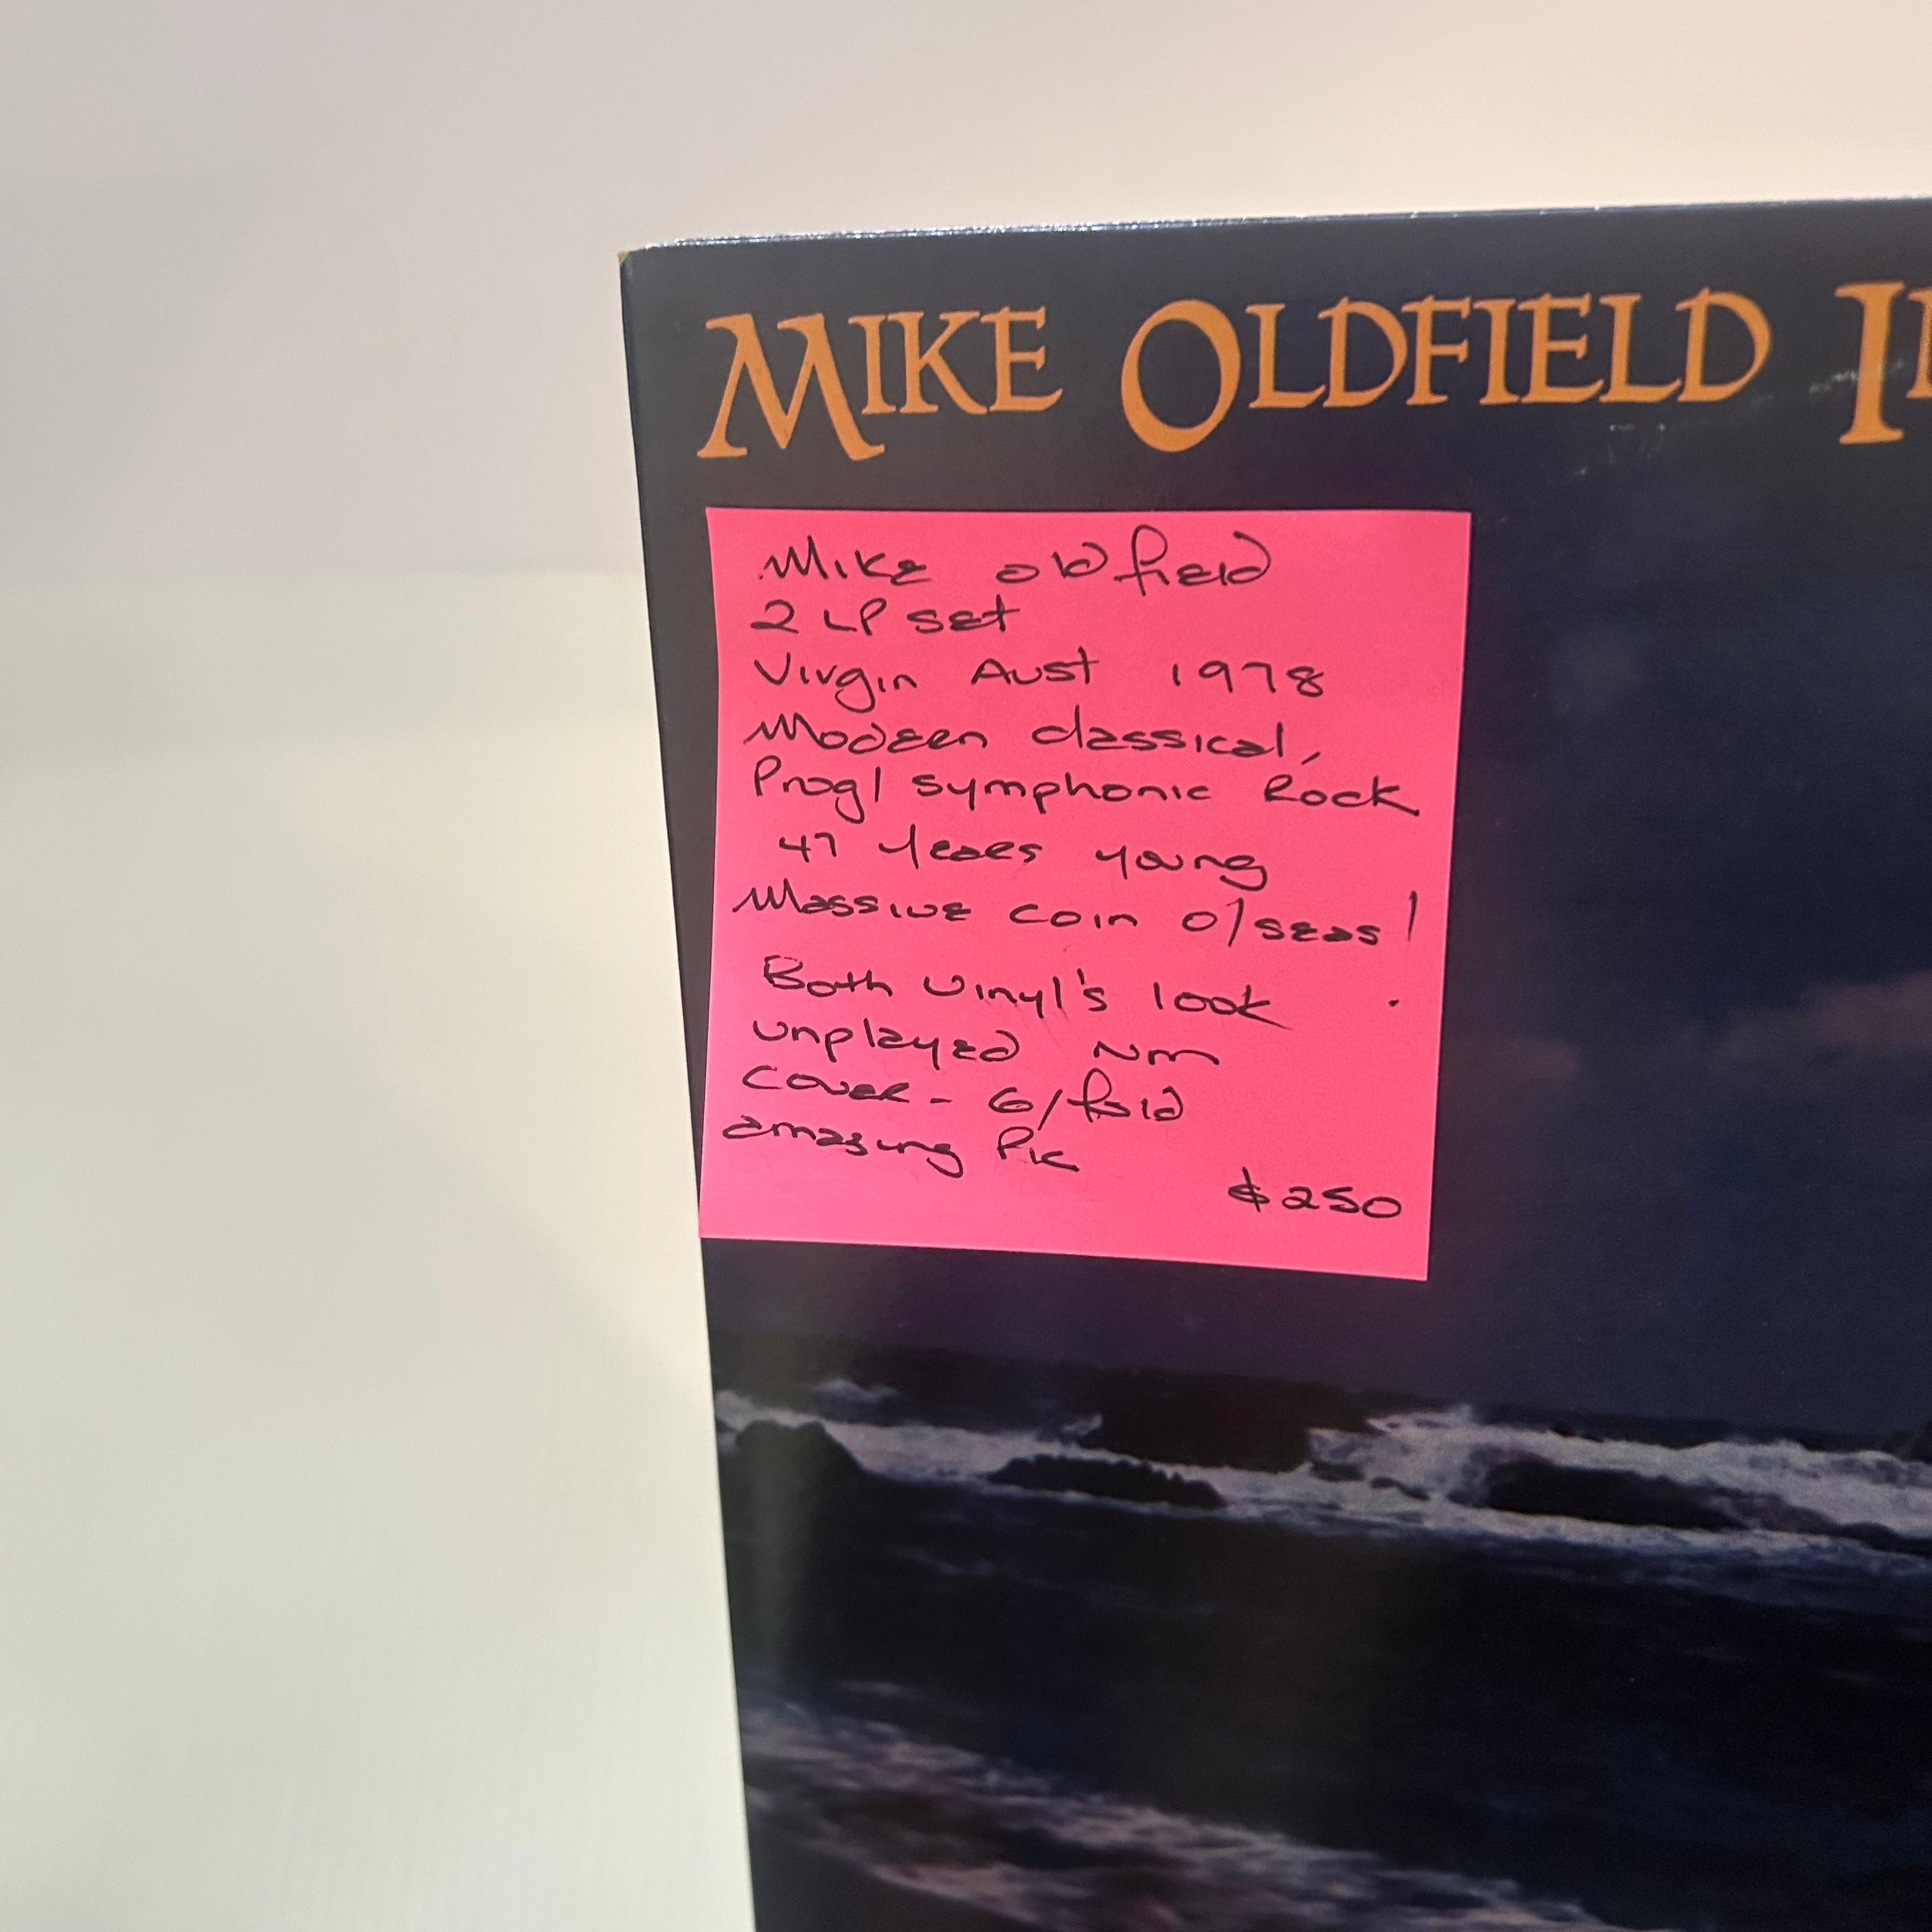 MIKE OLDFIELD IN
Mike oldfield
2 LP set
Virgin Aust 1978
Modern classical,
Prog/ symphonic Rock
47 Years young
Massive coin o/seas!
Both Vinyl's look
unplayed NM
Cover - G/fold
amazing Pic
$250